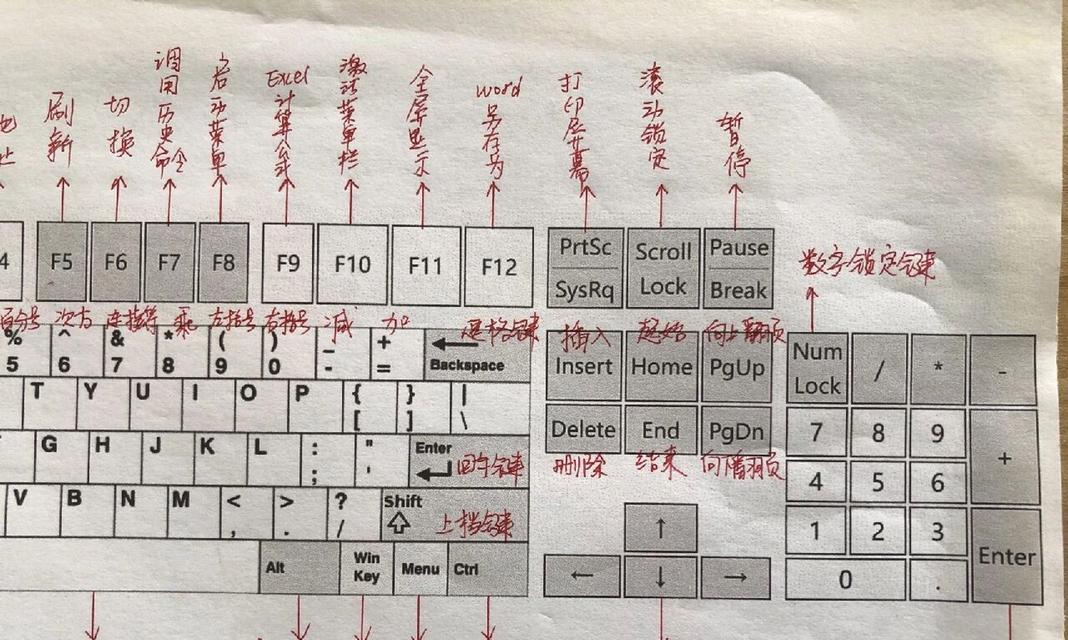 刷新 切换 调用历史命令 启动菜单 Excel计算公式 激活菜单栏 全屏显示 word另存为 打印屏幕 滚动锁定 暂停
4 F5 F6 F7 F8 F9 F10 F11 F12 PrtSc SysRq Scroll Lock Pause Break
数字锁定键
百分号 次方 连接符 乘 左括号 右括号 减 加 退格键 插入 起始 向上翻页
% ^ & * ( ) _ +
5 6 7 8 9 0 - = ← Backspace Insert Home PgUp Num Lock / * -
T Y U I O P { [ } ] | \ Delete End PgDn 7 8 9 +
删除 结束 向下翻页
G H J K L : ; " ' Enter 回车键 4 5 6
V B N M < , > . ? / Shift 上档键 ↑ 1 2 3 Enter
Alt Win Key Menu Ctrl ← ↓ → 0 .